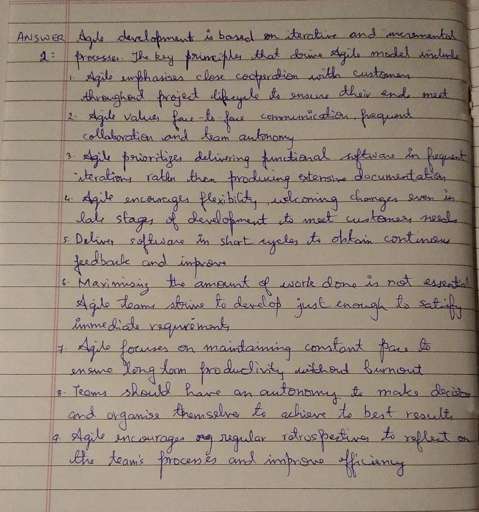 ANSWER Agile development is based on iterative and incremental
2: processes. The key principles that drive Agile model include
1. Agile emphasises close cooperation with customers
throughout project lifecycle to ensure their ends meet
2. Agile values face-to face communication, frequent
collaboration and team autonomy
3. Agile prioritizes delivering functional software in frequent
iterations rather than producing extensive documentation
4. Agile encourages flexibility, welcoming changes even in
late stages of development to meet customers needs
5. Deliver software in short cycles to obtain continuous
feedback and improve
6. Maximising the amount of work done is not essential
Agile teams strive to develop just enough to satisfy
immediate requirements
7. Agile focuses on maintaining constant pace to
ensure long term productivity without burnout
8. Teams should have an autonomy to make decisions
and organise themselves to achieve to best results
9. Agile encourages regular retrospectives to reflect on
the team's processes and improve efficiency